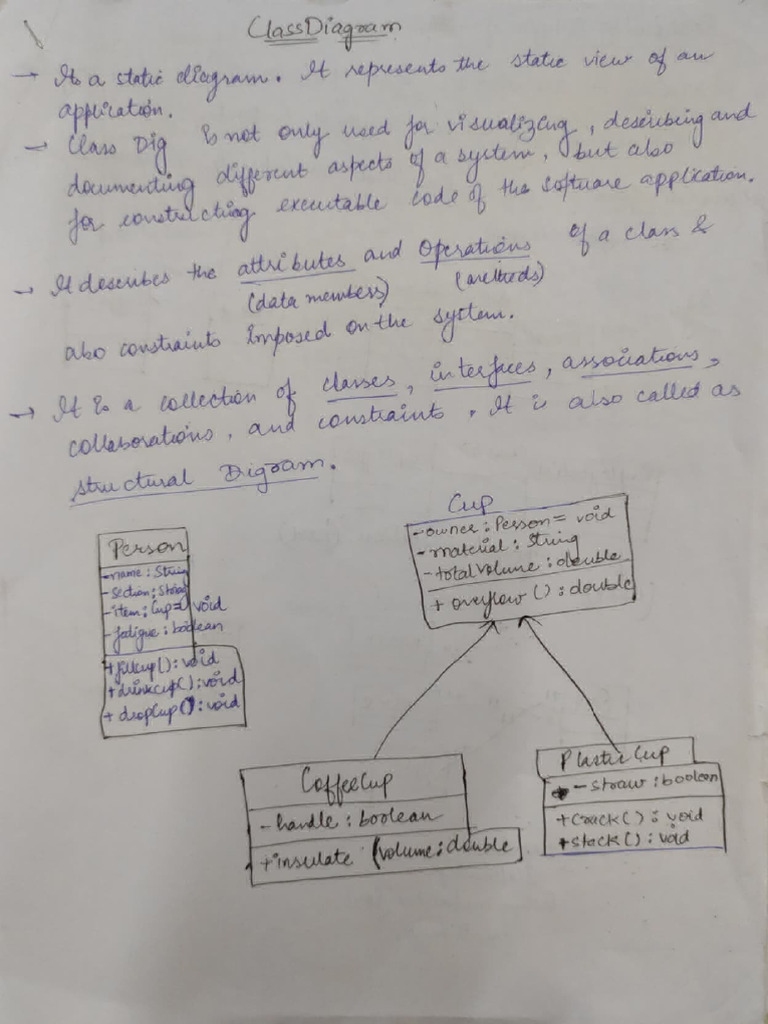 Class Diagram
→ Its a static diagram. It represents the static view of an
application.
→ Class Dig is not only used for visualizing, describing and
documenting different aspects of a system, but also
for constructing executable code of the software application.
→ It describes the attributes and Operations of a class &
(data members) (methods)
also constraints Imposed on the system.
→ It is a collection of classes, interfaces, associations,
collaborations, and constraints. It is also called as
structural Digram.
Person
-name: String
-section: String
-item: Cup= void
-fatigue: boolean
+fillcup(): void
+drinkcup(): void
+dropCup(): void
Cup
-owner: Person= void
-material: String
-totalvolume: double
+ overflow (): double
CoffeeCup
-handle: boolean
+insulate (volume: double
PlasticCup
- straw: boolean
+crack(): void
+stack(): void